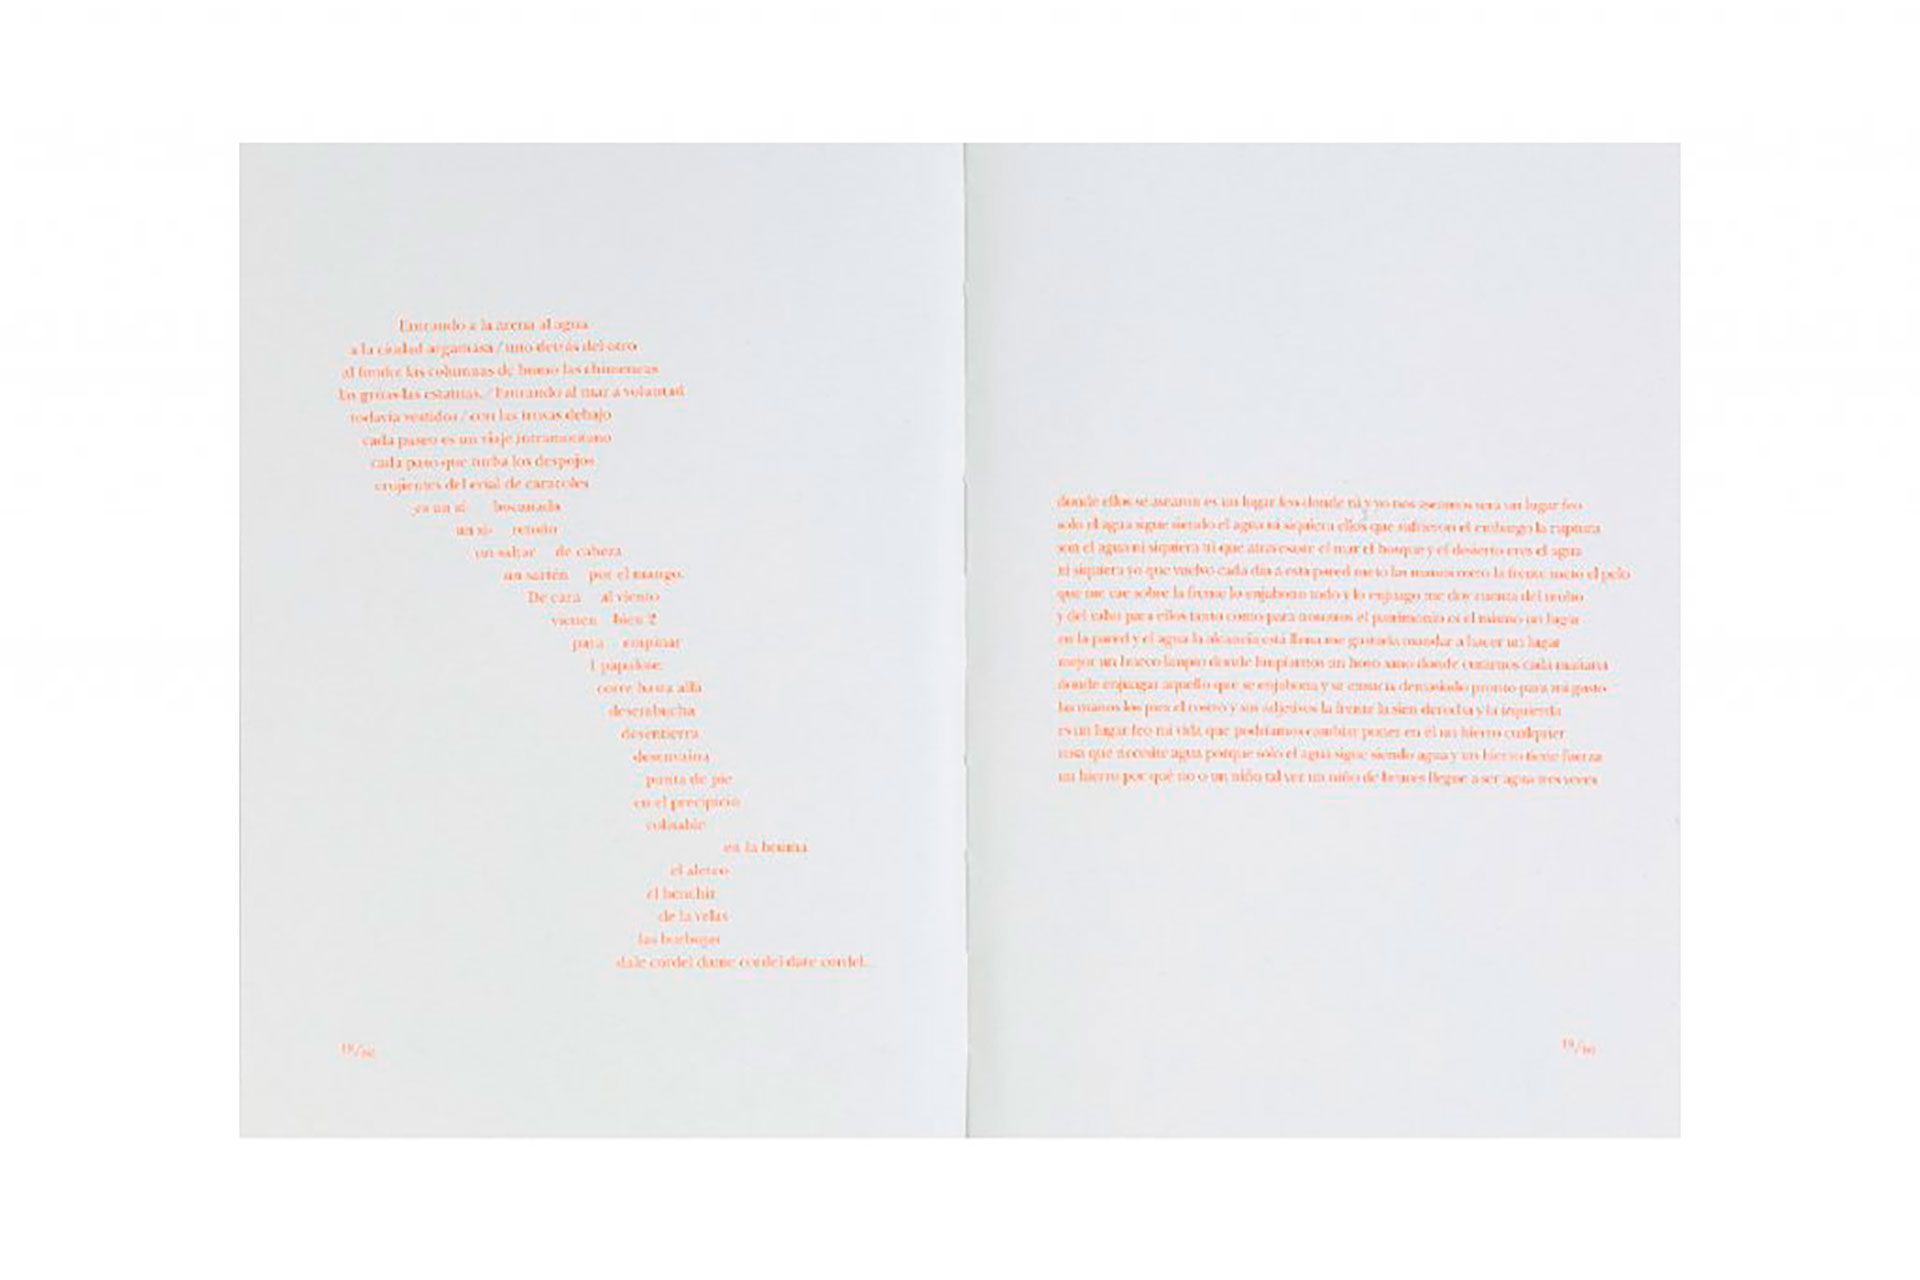 Entrando a la arena al agua
a la ciudad argamasa / uno detrás del otro
al fondo las columnas de humo las chimeneas
las grúas las estatuas. / Entrando al mar a voluntad
todavía vestidos / con las trusas debajo
cada paseo es un viaje intramontano
cada paso que turba los despojos
crujientes del erial de caracoles
es un sí bocanada
un sí retoño
un saltar de cabeza
un sartén por el mango.
De cara al viento
vienen bien 2
para empinar
1 papalote.
corre hasta allá
desembucha
desentierra
desenvaina
punta de pie
en el precipicio
en la bruma
el aleteo
el henchir
de la velas
las burbujas
dale cordel dame cordel date cordel...
18/60
donde ellos se asearon es un lugar feo donde tú y yo nos aseamos será un lugar feo
solo el agua sigue siendo el agua ni siquiera ellos que sufrieron el embargo la ruptura
son el agua ni siquiera tú que atravesaste el mar el bosque y el desierto eres el agua
ni siquiera yo que vuelvo cada día a esta pared meto las manos meto la frente meto el pelo
que me cae sobre la frente lo enjabono todo y lo enjuago me doy cuenta del
y del vaho para ellos tanto como para nosotros el patrimonio es el mismo un lugar
en la pared y el agua la alcancía está llena me gustaría mandar a hacer un lugar
mejor un hueco limpio donde limpiarnos un hoyo sano donde curarnos cada mañana
donde enjuagar aquello que se enjabona y se ensucia demasiado pronto para mi gusto
las manos los pies el rostro y sus adjetivos la frente la sien derecha y la izquierda
es un lugar feo mi vida que podríamos cambiar poner en él un hierro cualquier
cosa que necesite agua porque solo el agua sigue siendo agua y un hierro tiene fuerza
un hierro por qué no o un niño tal vez un niño de bruces llegue a ser agua tres veces
19/60